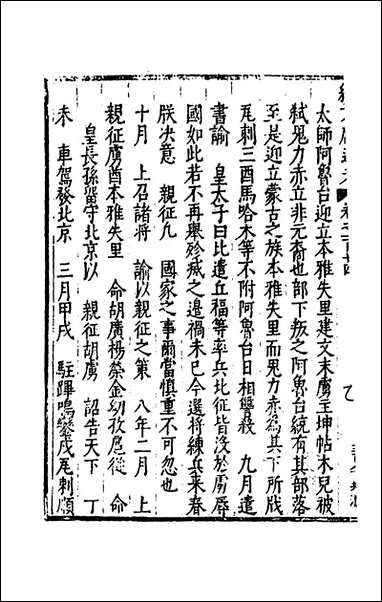 太師阿魯台迎立本雅失里建文末虜主坤帖木兒被
弒鬼力赤立非元裔也部下叛之阿魯台統有其部落
至是迎立蒙古之族本雅失里而鬼力赤為其下所戕
瓦剌三酋馬哈木等不附阿魯台日相讐殺 九月遣
書諭 皇太子曰比遣丘福等率兵北征皆沒於虜辱
國如此若不再舉殄滅之邊禍未已今選將練兵來春
朕決意 親征凡 國家之事爾當慎重不可忽也
十月 上召諸將 諭以親征之策 八年二月 上
親征虜酋本雅失里 命胡廣楊榮金幼孜扈從 命
皇長孫留守北京以 親征胡虜 詔告天下 丁
未 車駕發北京 三月甲戌 駐蹕鳴鑾戍瓦剌順